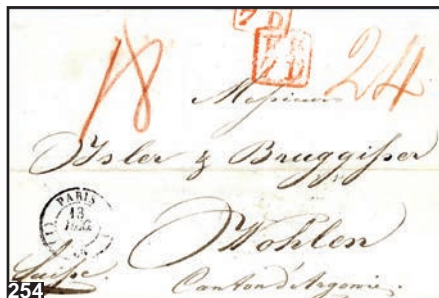 7 D
18
24
Messieurs
Isler & Bruggisser
PARIS
13
Wohlen
Suisse
Canton d'Argovie.
254